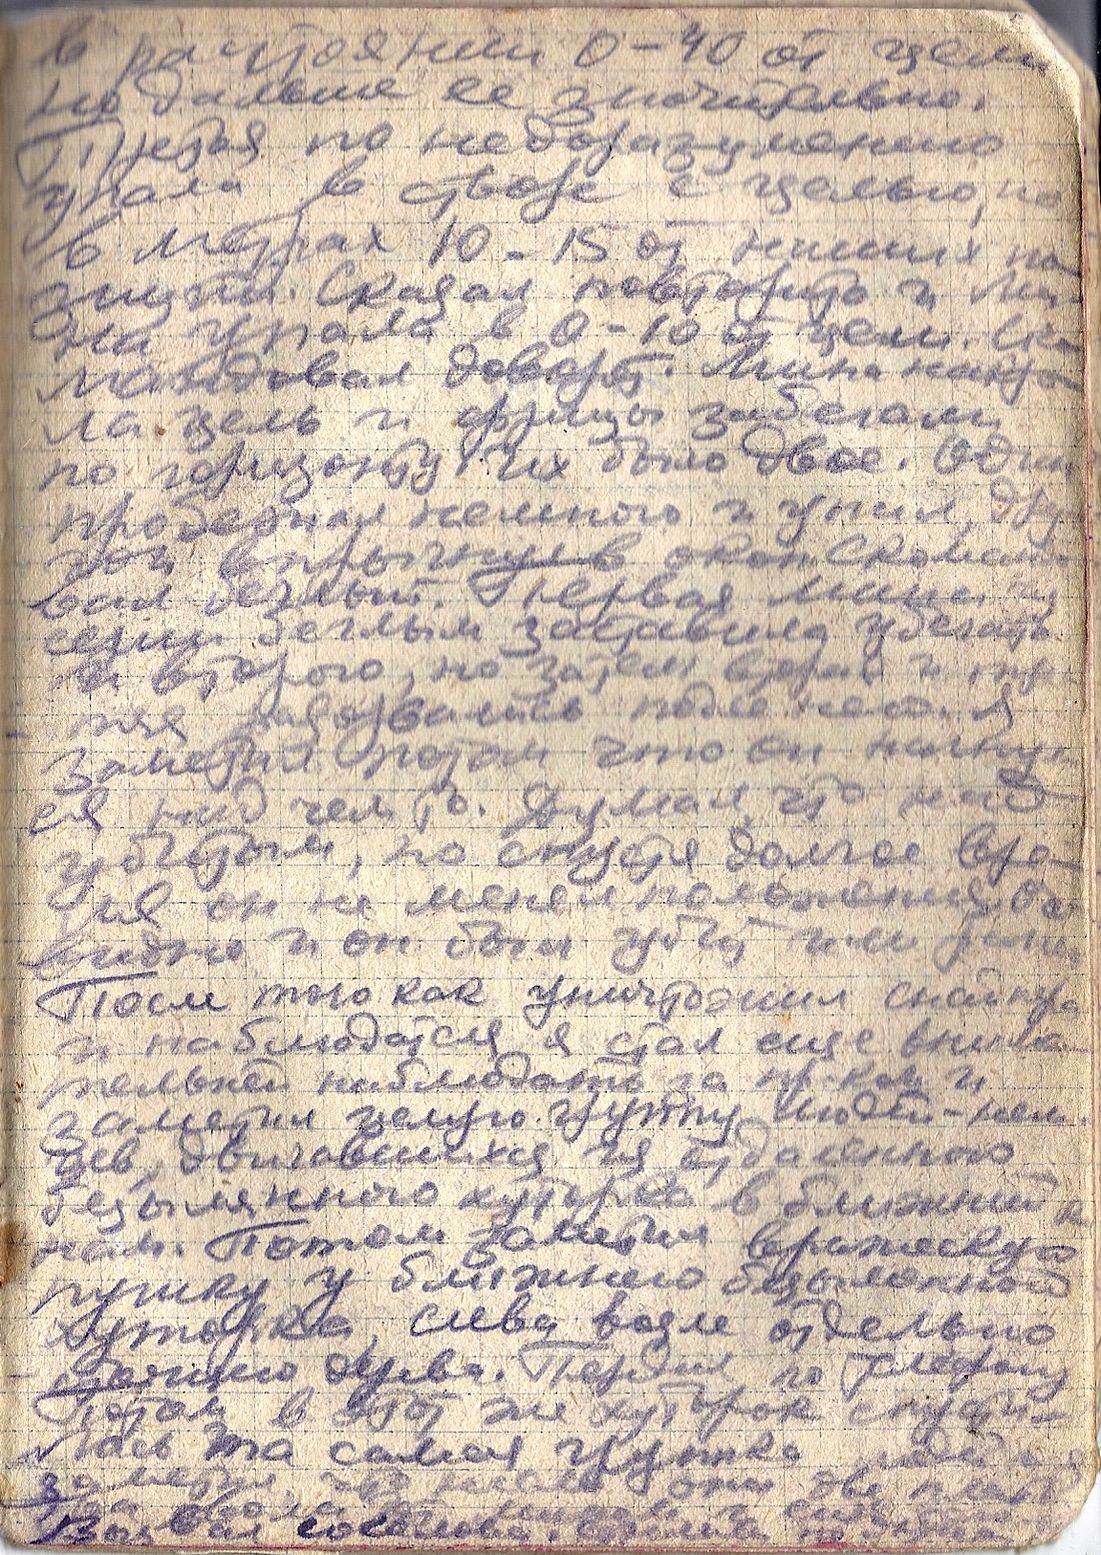 в расстоянии 0-40 от цели
но дальше ее значительно.
Третья по недоразумению
упала в створе с целью, но
в метрах 10-15 от наших по
зиций. Сказал повторить и ми
на упала в 0-10 от цели. Ско
мандовал доворот. Мина накры
ла цель и фрицы забегали
по горизонту их было двое. Один
пробежал немного и упал, дру
гой впрыгнув в окоп. Скоманд
вал беглый. Первая мина из
серии беглым заставила убежать
и второго, но затем вторая и тре
тья разорвались подле него. Я
заметил потом что он нагнул
ся над чем то. Думал, что над
убитым, но спустя долгое вре
мя он не менял положения. Оче
видно и он был убит или ранен
После того как уничтожил снайпера
и наблюдателя я стал еще внима
тельней наблюдать за пр-ком и
заметил целую группу людей - нем
цев, двигавшихся из отдаленного
безымянного хуторка в ближний к
нам. Потом заметил вражескую
пушку у ближнего безымянного
хуторка, слева возле отдельно
стоящего дерева. Передал по телефону
Потом в этот же хуторок спусти-
лась та самая группа людей. Я
заметил, что несли они две
Вызвал